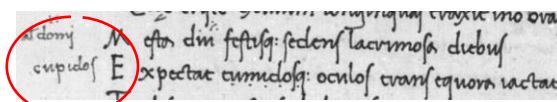 al domj M esta diu festisq: sedens lacrimosa diebus
cupidos E xpectat tumidosq: oculos trans equora iactat